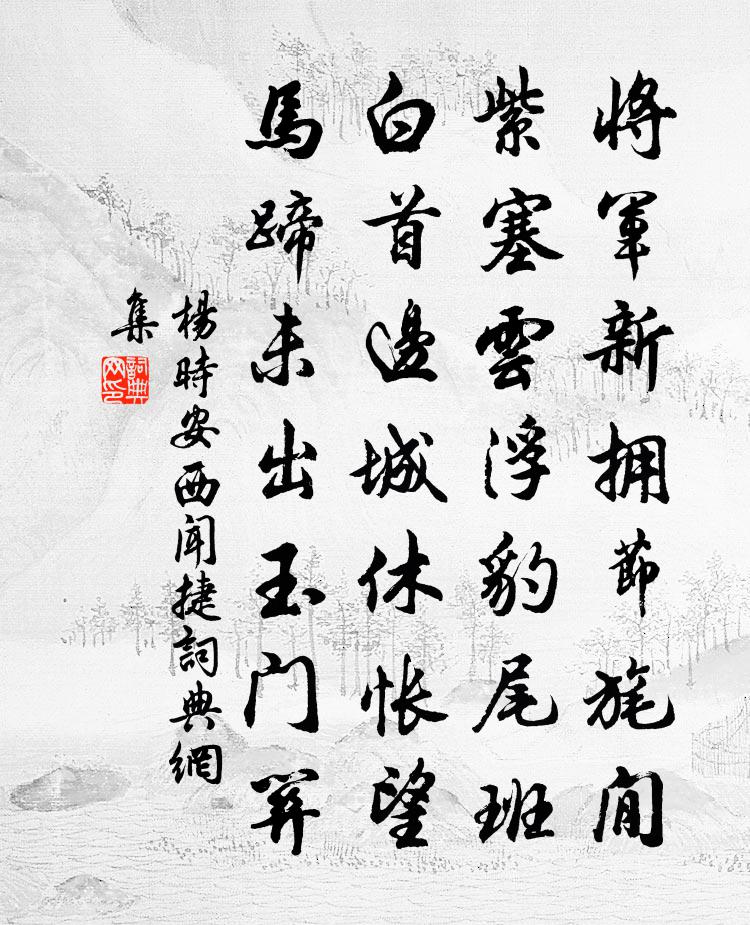 將軍新擁節旄間
紫塞雲浮豹尾班
白首邊城休悵望
馬蹄未出玉門關
楊時安西聞捷詞典網
集
詞典
网印